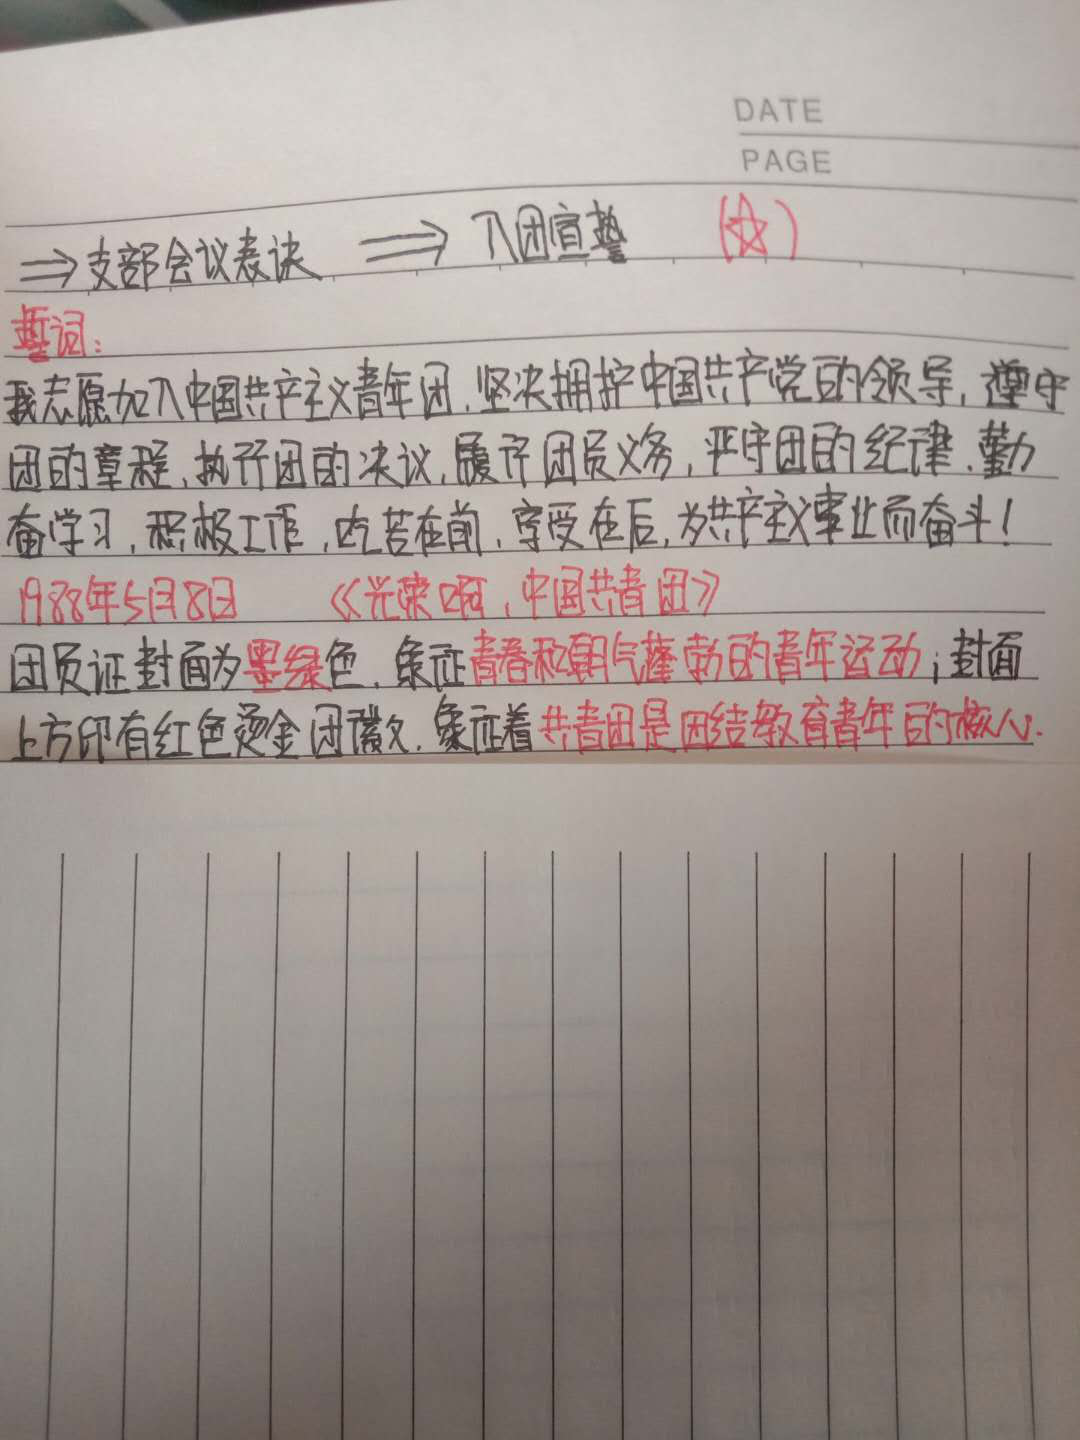 DATE
PAGE
⇒支部会议表决 ⇒ 入团宣誓 (☆)
誓词:
我志愿加入中国共产主义青年团,坚决拥护中国共产党的领导,遵守
团的章程,执行团的决议,履行团员义务,严守团的纪律,勤
奋学习,积极工作,吃苦在前,享受在后,为共产主义事业而奋斗!
1988年5月8日 《光荣啊,中国共青团》
团员证封面为墨绿色,象征青春和朝气蓬勃的青年运动;封面
上方印有红色烫金团徽,象征着共青团是团结教育青年的核心.